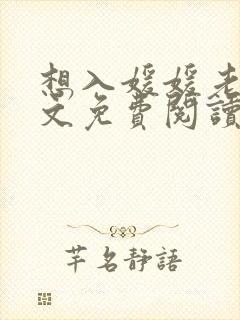 想入媛媛老
文免費閱讀
芊名靜語